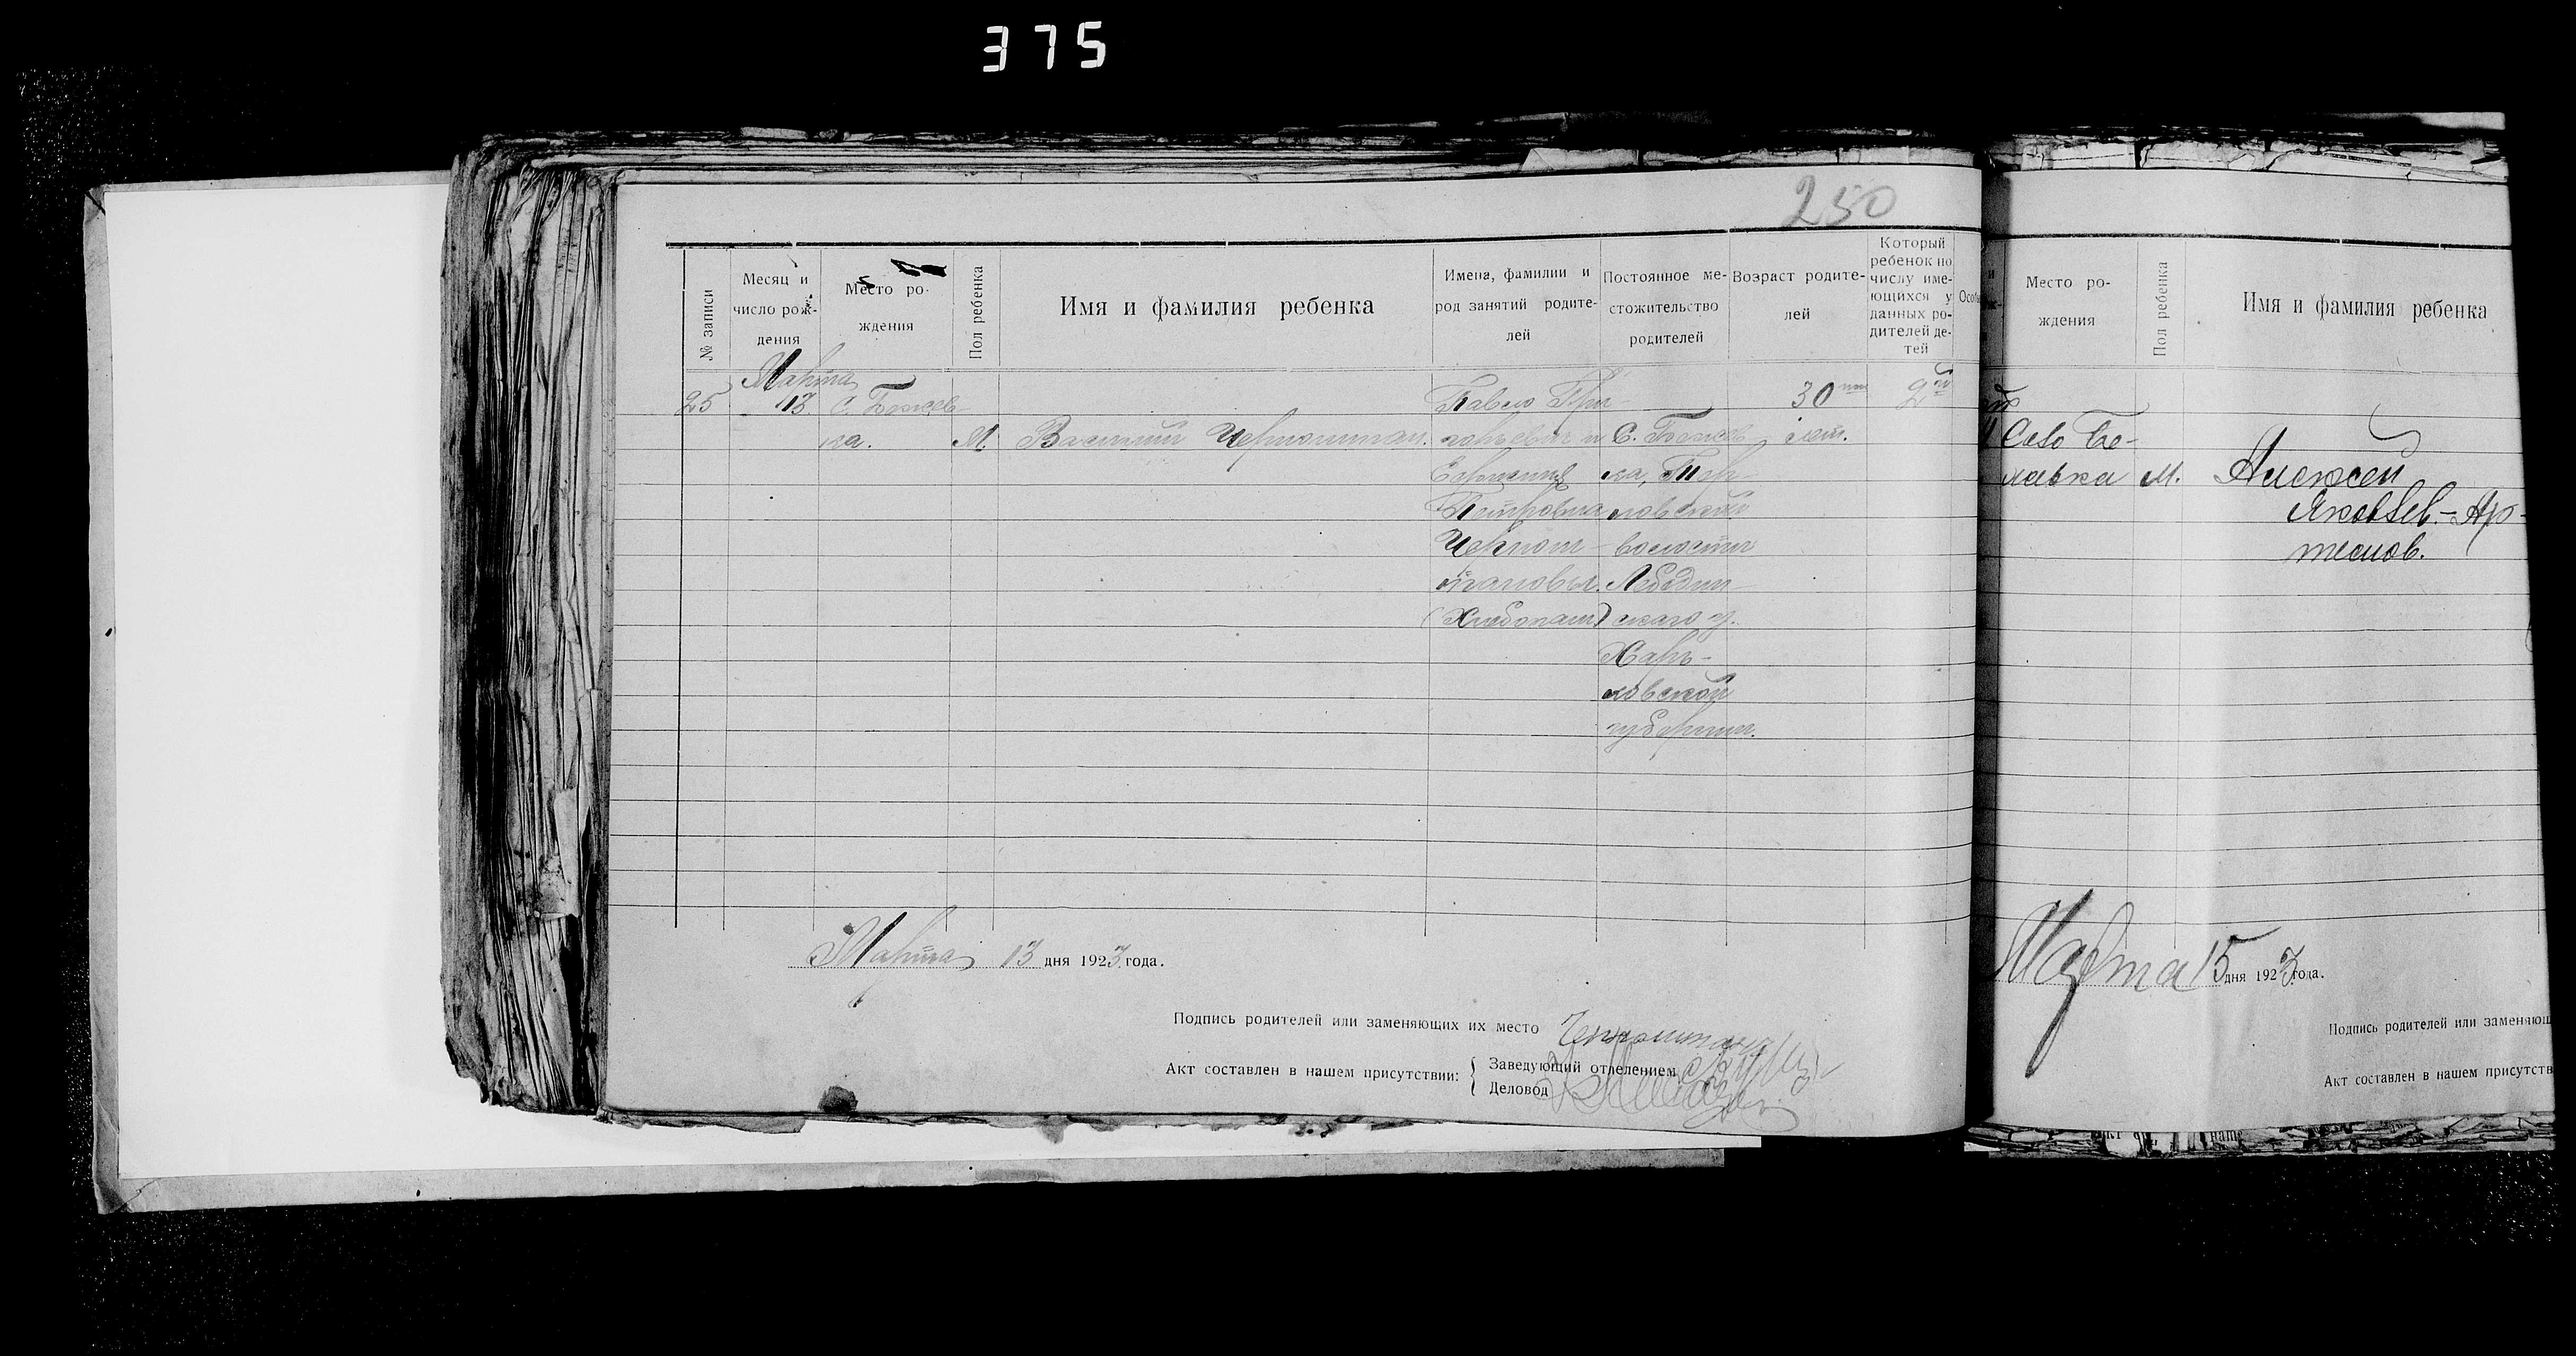 375
250
№ записи
Месяц и число рождения
Место рождения
Пол ребенка
Имя и фамилия ребенка
Имена, фамилии и род занятий родителей
Постоянное местожительство родителей
Возраст родителей
Который ребенок по числу имеющихся у данных родителей детей
25
Марта
13
с. Боже-
ка.
М.
Василий Черноштан.
Павел Гри-
горьевич и
Петровна
Чернош-
тановы.
(Хлебопаш)
С.
волости
Лебедин-
скаго у.
Харь-
ковской
губернии.
30
лет.
2й
Марта 13 дня 1923 года.
Подпись родителей или заменяющих их место Черноштан
Акт составлен в нашем присутствии:
Заведующий отделением
Деловод
Место рождения
Пол ребенка
Имя и фамилия ребенка
Село Бе-
лавка
М.
Алексей
Яковлев.-Ар-
темов.
Марта 15 дня 1923 года.
Подпись родителей или заменяющ
Акт составлен в нашем присутств